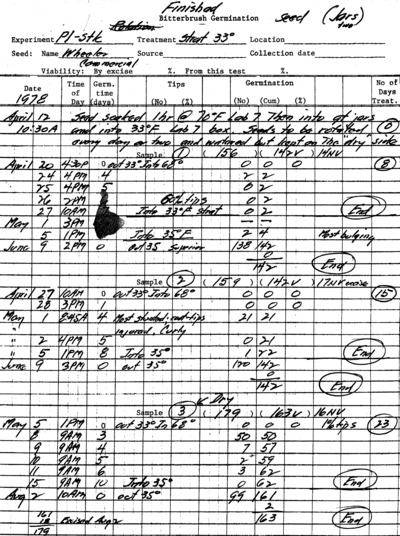 Finished
Bitterbrush Germination Seed (Jars)
Rotation Two
Experiment Pl-Stk Treatment Strat 33° Location
Seed: Name Wheeler Source Collection date
Commercial
Viability: By excise %. From this test %.
Date Time of Day Germ. time (days) Tips (No) (%) Germination (No) (Cum) (%) No of Days Treat.
1978
April 12 Seed soaked 1hr @ 70°F Lab 7 Then into qt jars
10:30AM and into 33°F Lab 7 box. Seeds to be rotated 0
every day or two and watered but kept on the "dry" side
Sample 1 (156) (142V) 14NV
April 20 430P 0 out 33° Into 68° 0 0 0 8
24 4PM 4 2 2
25 4PM 5 0 2
26 2PM 60% tips 0 2
27 10AM Into 33°F strat 0 2 End
May 1 3PM — —
5 1PM Into 35°F 2 4 Most bulging
June 9 2PM 0 out 35 Superior 138 142
0
142 End
Sample 2 (159) (142V) 17NV
April 27 10AM 0 out 33° Into 68° 0 0 0 15
28 3PM 1 0 0 0
May 1 845A 4 Most shucked; root tips 21 21
injured. Curly
" 2 4PM 5 0 21
" 5 1PM 8 Into 35° 1 22 End
June 9 3PM 0 out 35° 120 142
0
142 End
Dry
Sample 3 (179) (163V) 16NV
May 5 1PM 0 out 33° In 68° 0 0 0 tips 23
8 9AM 3 50 50
9 9AM 4 7 57
10 9AM 5 2 59
11 9AM 6 3 62
15 9AM 10 Into 35° 0 62 End
Aug 2 10AM 0 out 35° 99 161
2
161 163 End
18 Excised Aug 2
179